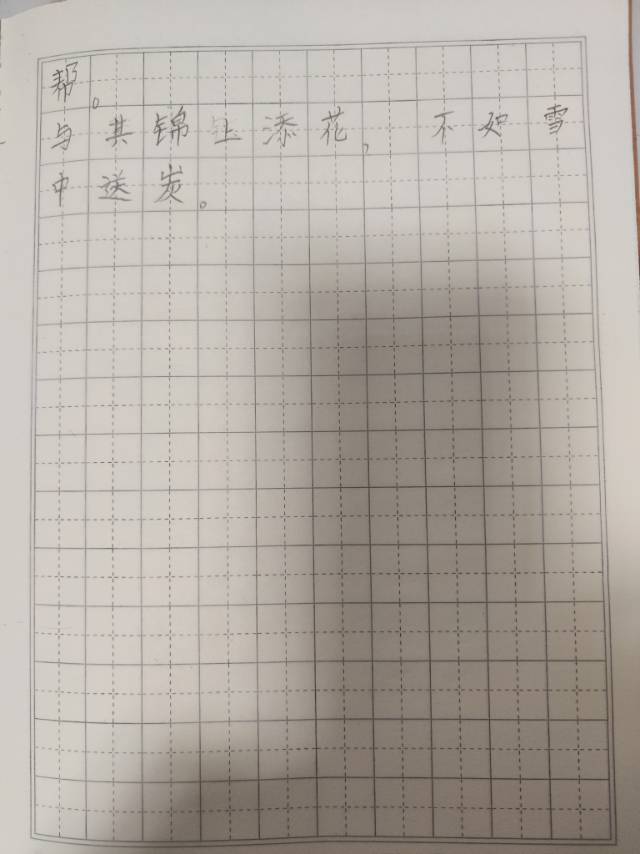 帮。
与其锦上添花,不如雪
中送炭。